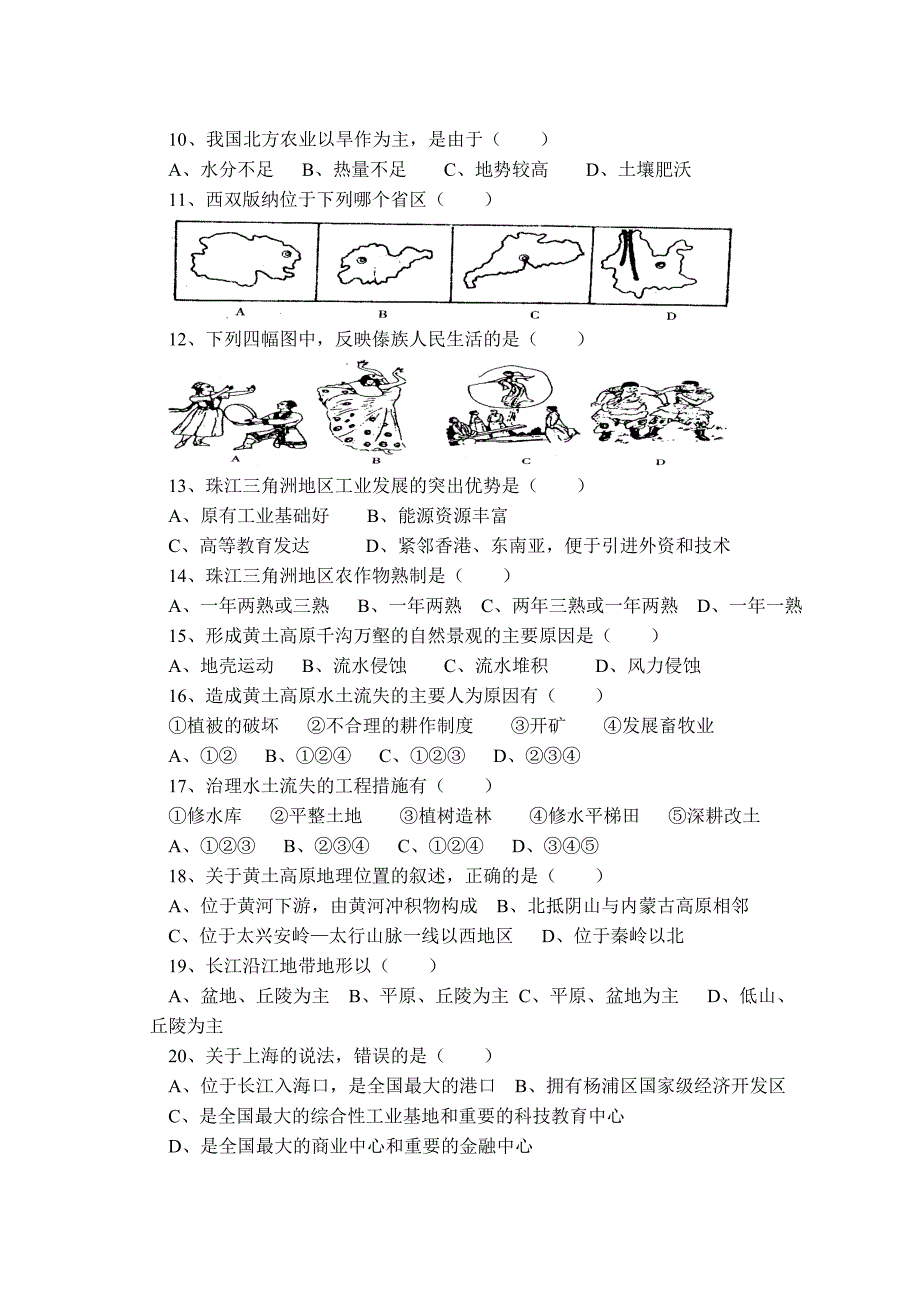 10、我国北方农业以旱作为主，是由于（　　）
A、水分不足 B、热量不足 C、地势较高 D、土壤肥沃
11、西双版纳位于下列哪个省区（　　）
A B C D
12、下列四幅图中，反映傣族人民生活的是（　　）
A B C D
13、珠江三角洲地区工业发展的突出优势是（　　）
A、原有工业基础好 B、能源资源丰富
C、高等教育发达 D、紧邻香港、东南亚，便于引进外资和技术
14、珠江三角洲地区农作物熟制是（　　）
A、一年两熟或三熟 B、一年两熟 C、两年三熟或一年两熟 D、一年一熟
15、形成黄土高原千沟万壑的自然景观的主要原因是（　　）
A、地壳运动 B、流水侵蚀 C、流水堆积 D、风力侵蚀
16、造成黄土高原水土流失的主要人为原因有（　　）
①植被的破坏 ②不合理的耕作制度 ③开矿 ④发展畜牧业
A、①② B、①②④ C、①②③ D、②③④
17、治理水土流失的工程措施有（　　）
①修水库 ②平整土地 ③植树造林 ④修水平梯田 ⑤深耕改土
A、①②③ B、②③④ C、①②④ D、③④⑤
18、关于黄土高原地理位置的叙述，正确的是（　　）
A、位于黄河下游，由黄河冲积物构成 B、北抵阴山与内蒙古高原相邻
C、位于太兴安岭—太行山脉一线以西地区 D、位于秦岭以北
19、长江沿江地带地形以（　　）
A、盆地、丘陵为主 B、平原、丘陵为主 C、平原、盆地为主 D、低山、
丘陵为主
20、关于上海的说法，错误的是（　　）
A、位于长江入海口，是全国最大的港口 B、拥有杨浦区国家级经济开发区
C、是全国最大的综合性工业基地和重要的科技教育中心
D、是全国最大的商业中心和重要的金融中心